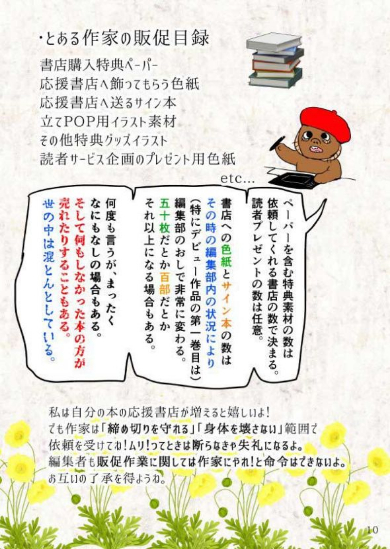 ・とある作家の販促目録
書店購入特典ペーパー
応援書店へ飾ってもらう色紙
応援書店へ送るサイン本
立てPOP用イラスト素材
その他特典グッズイラスト
読者サービス企画のプレゼント用色紙
etc…
ペーパーを含む特典素材の数は
依頼してくれる書店の数で決まる。
読者プレゼントの数は任意。
書店への色紙とサイン本の数は
その時の編集部内の状況により
(特にデビュー作品の第一巻目は)
編集部のおしで非常に変わる。
五十枚だとか百部だとか
それ以上になる場合もある。
何度も言うが、まったく
なにもなしの場合もある。
そして何もしなかった本の方が
売れたりすることもある。
世の中は混とんとしている。
私は自分の本の応援書店が増えると嬉しいよ!
でも作家は「締め切りを守れる」「身体を壊さない」範囲で
依頼を受けてね!ムリ!ってときは断らなきゃ失礼になるよ。
編集者も販促作業に関しては作家にやれ!と命令はできないよ。
お互いの了承を得ようね。
10